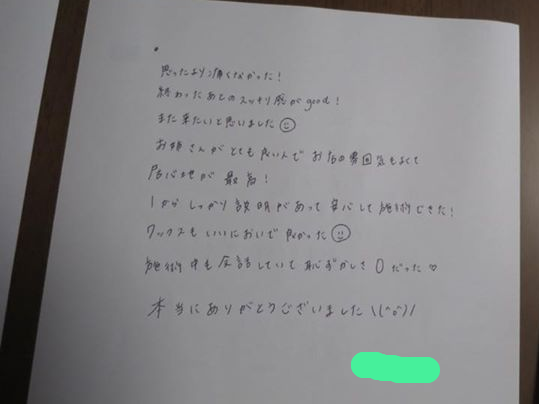 思ったより痛くなかった!
終わったあとのスッキリ感がgood!
また来たいと思いました☺
お姉さんがとても良い人でお店の雰囲気もよくて
居心地が最高!
1からしっかり説明があって安心して施術できた!
ワックスもいいにおいで良かった☺
施術中も会話していて恥ずかしさ0だった♡
本当にありがとうございました\(^o^)/